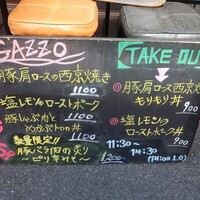 GAZZO
豚肩ロースの西京焼き
1100
塩レモンローストポーク
1100
豚しんぶ肉と
めかぶトロ丼
1100
数量限定!!
豚バラ肉の炙り
〜ピリ辛みそ〜
1200-
TAKE OU
◎豚肩ロース西京焼
キリモリ丼
900
◎塩レモンの
ローストポーク丼
900
11:30〜
14:30
(14:00 L.O)